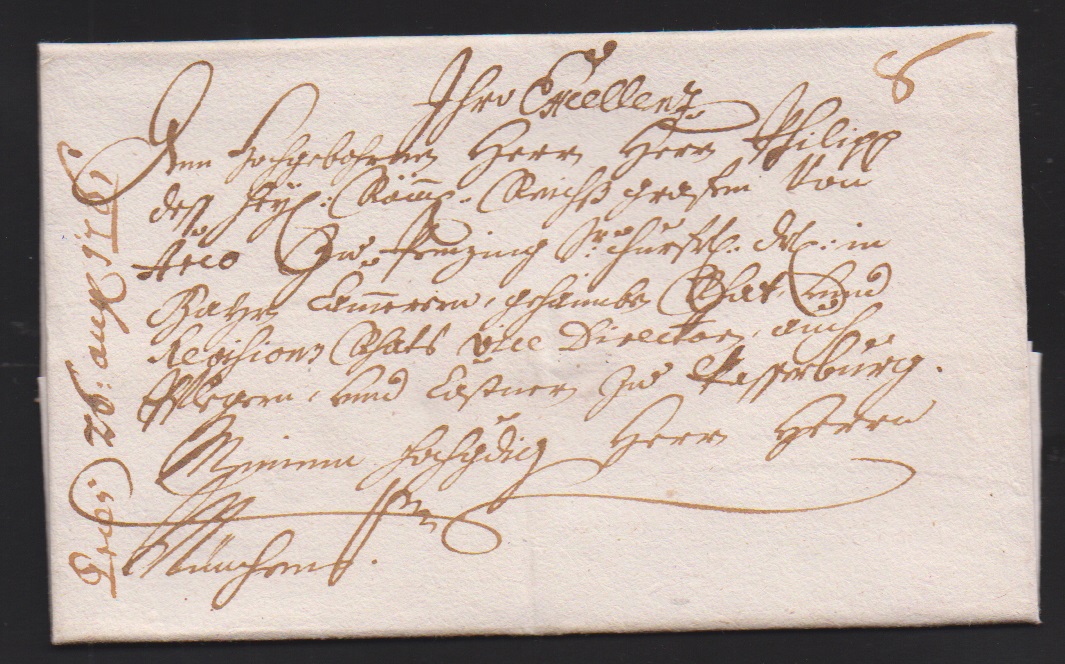 8
Ihro Excellenz
Dem Hochgebohrnen Herrn Herrn Philipp
deß Heyl: Röm: Reichß Grafen von
Arco Zu Penzing Sr: Churfrtl: Drtl: in
Bayrn Cammerern, gehaimben Rhat, und
Revisions Rhats Vice Directorn, auch
Pflegern, und Castnern Zu Wasserburg.
Meinem Hochgdig Herrn Herrn
München.
26: aug